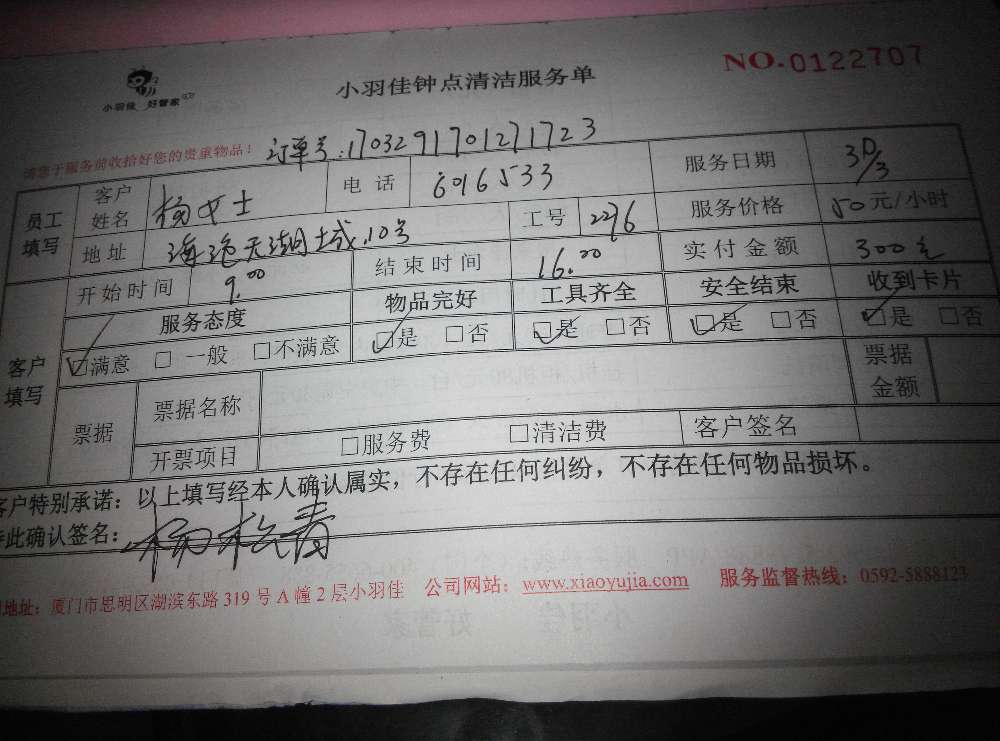 小羽佳 好管家
小羽佳钟点清洁服务单
NO.0122707
请您于服务前收拾好您的贵重物品！
订单号:1703291701271723
员工填写 客户姓名 杨女士 电话 6916533 服务日期 30/3
地址 海沧天湖城.10号 工号 2276 服务价格 50元/小时
开始时间 9.00 结束时间 16.00 实付金额 300元
客户填写 服务态度 物品完好 工具齐全 安全结束 收到卡片
☑满意 □一般 □不满意 ☑是 □否 ☑是 □否 ☑是 □否 ☑是 □否
票据 票据名称 票据金额
开票项目 □服务费 □清洁费 客户签名
客户特别承诺：以上填写经本人确认属实，不存在任何纠纷，不存在任何物品损坏。
此确认签名：杨松青
地址：厦门市思明区湖滨东路319号A幢2层小羽佳 公司网站：www.xiaoyujia.com 服务监督热线：0592-5888123